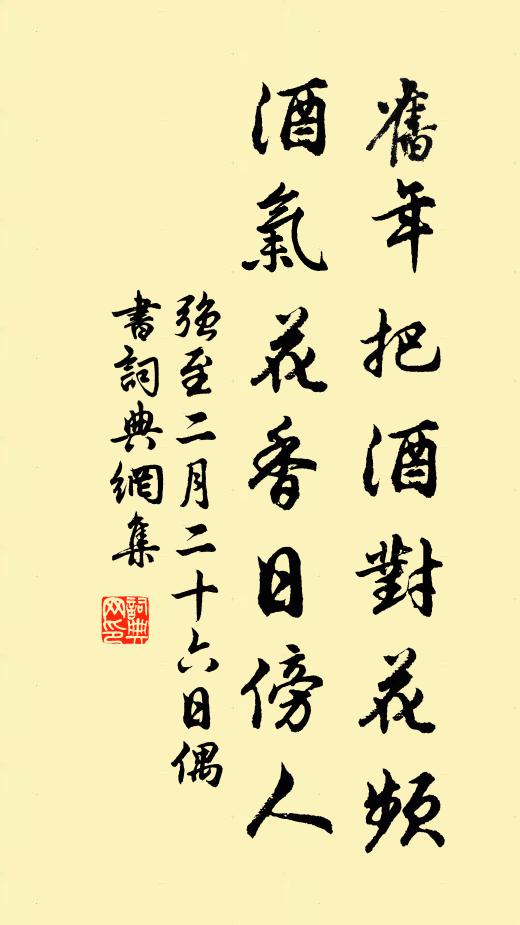 舊年把酒對花頻
酒氣花香日傍人
強至二月二十六日偶
書詞典網集
詞典網印